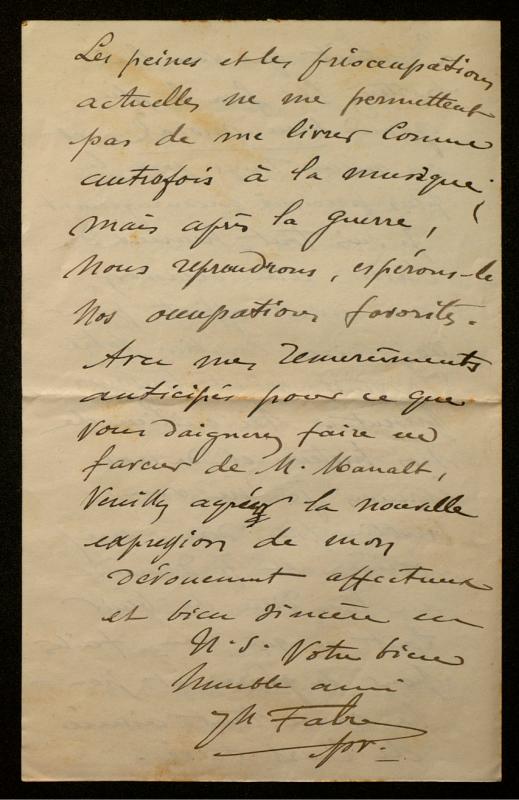 Les peines et les préoccupations
actuelles ne me permettent
pas de me livrer comme
autrefois à la musique;
mais après la guerre,
nous reprendrons, espérons-le
nos occupations favorites.
Avec mes remerciements
anticipés pour ce que
vous daignerez faire en
faveur de M. Manalt,
Veuillez agréer la nouvelle
expression de mon
dévouement affectueux
et bien sincère en
N. S. Votre bien
humble ami
Fabre